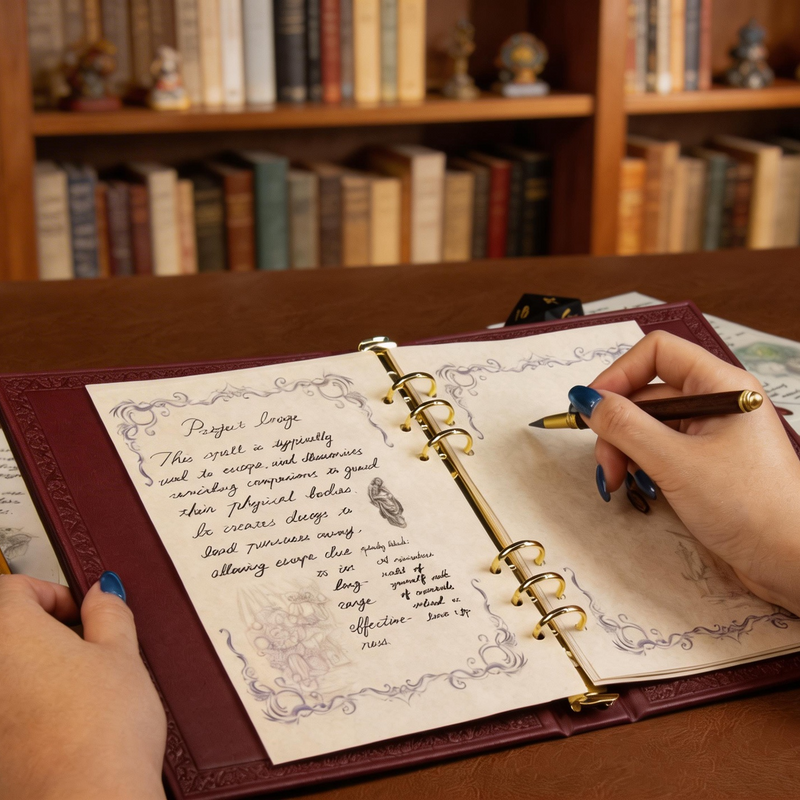 Project Image
This spell is typically
used to escape, and
remaining companions to guard
their physical bodies.
It creates decoys to
lead pursuers away,
allowing escape due
to its
long-
range
effective-
ness.
made of
yourself
of